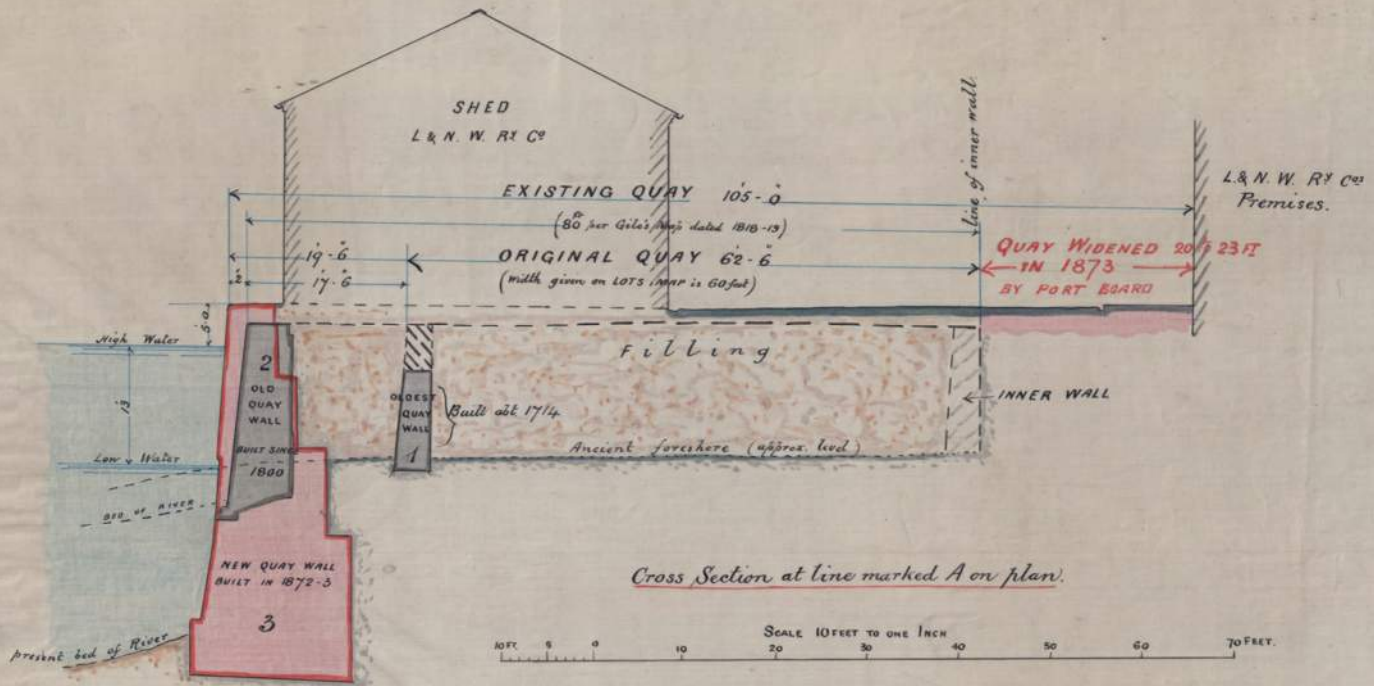 SHED
L & N. W. Rʸ Cº
line of inner wall
EXISTING QUAY 105-0
L. & N. W. Rʸ Cºˢ
Premises.
(80 ft per Gile's Map dated 1818-19)
19-6
ORIGINAL QUAY 62-6
2
17-6
(width given on LOTS MAP is 60 feet)
QUAY WIDENED 20 23 FT
IN 1873
BY PORT BOARD
High Water
13
Low Water
BED OF RIVER
Filling
2
OLD
QUAY
WALL
BUILT SINCE
1800
OLDEST
QUAY
WALL
1
Built abt 1714
INNER WALL
Ancient foreshore (approx. level)
NEW QUAY WALL
BUILT IN 1872-3
3
present bed of River
Cross Section at line marked A on plan.
SCALE 10 FEET TO ONE INCH
10 FT. 5 0 10 20 30 40 50 60 70 FEET.